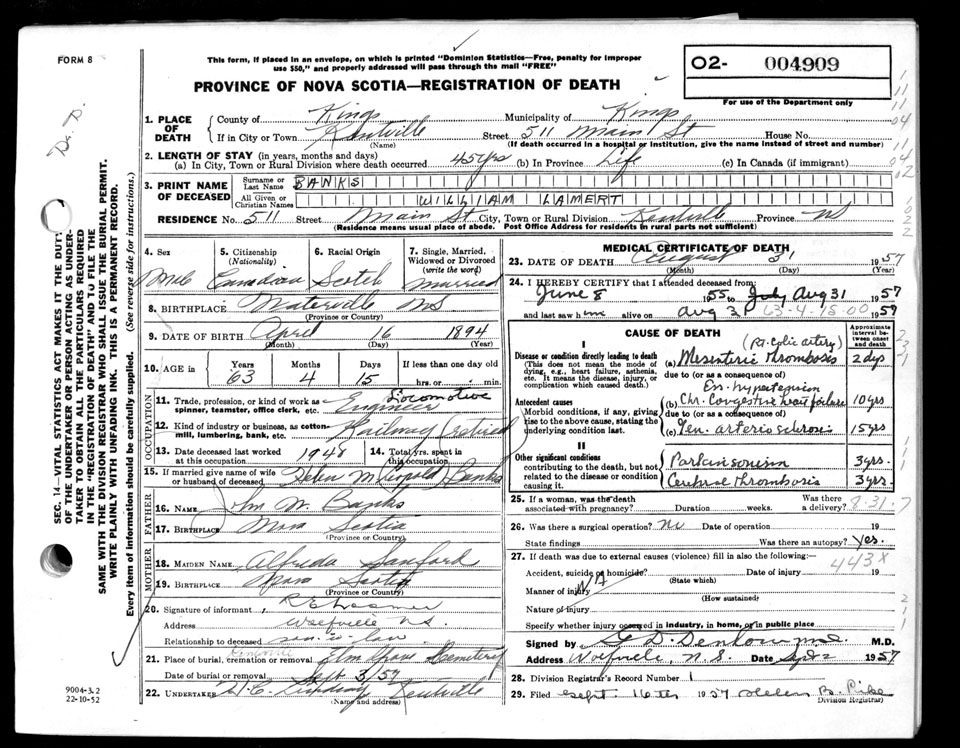 FORM 8
This form, if placed in an envelope, on which is printed "Dominion Statistics—Free, penalty for improper
use $50," and properly addressed will pass through the mail "FREE"
PROVINCE OF NOVA SCOTIA—REGISTRATION OF DEATH
O2- 004909
For use of the Department only
Dr. D.
SEC. 14—VITAL STATISTICS ACT MAKES IT THE DUTY
OF THE UNDERTAKER OR PERSON ACTING AS UNDER-
TAKER TO OBTAIN ALL THE PARTICULARS REQUIRED
IN THE "REGISTRATION OF DEATH" AND TO FILE THE
SAME WITH THE DIVISION REGISTRAR WHO SHALL ISSUE THE BURIAL PERMIT.
WRITE PLAINLY WITH UNFADING INK. THIS IS A PERMANENT RECORD.
Every item of information should be supplied carefully. (See reverse side for instructions.)
1. PLACE OF DEATH
County of Kings Municipality of Kings
If in City or Town Kentville Street 511 Main St House No.
(Name) (If death occurred in a hospital or institution, give the name instead of street and number)
2. LENGTH OF STAY (in years, months and days)
(a) In City, Town or Rural Division where death occurred 45 yrs (b) In Province Life (c) In Canada (if immigrant)
3. PRINT NAME OF DECEASED
Surname or Last Name BANKS
All Given or Christian Names WILLIAM LAMERT
RESIDENCE No. 511 Street Main St City, Town or Rural Division Kentville Province NS
(Residence means usual place of abode. Post Office Address for residents in rural parts not sufficient)
4. Sex 5. Citizenship (Nationality) 6. Racial Origin 7. Single, Married, Widowed or Divorced (write the word)
Male Canadian Scotch Married
8. BIRTHPLACE Waterville NS
(Province or Country)
9. DATE OF BIRTH April 16 1894
(Month) (Day) (Year)
10. AGE in Years Months Days If less than one day
63 4 15 hrs. or min.
OCCUPATION
11. Trade, profession, or kind of work as spinner, teamster, office clerk, etc. Locomotive Engineer
12. Kind of industry or business, as cotton-mill, lumbering, bank, etc. Railway (retired)
13. Date deceased last worked at this occupation 1948 14. Total yrs. spent in this occupation
15. If married give name of wife or husband of deceased Helen M Banks
FATHER
16. NAME John W. Banks
17. BIRTHPLACE Nova Scotia
(Province or Country)
MOTHER
18. MAIDEN NAME Alfreda Sanford
19. BIRTHPLACE Nova Scotia
(Province or Country)
20. Signature of informant
Address Wolfville NS.
Relationship to deceased son-in-law
21. Place of burial, cremation or removal Elm Grove Cemetery
Kentville
Date of burial or removal Sept 3/57
22. UNDERTAKER Kentville
(Name and address)
9004-3.2
22-10-52
MEDICAL CERTIFICATE OF DEATH
23. DATE OF DEATH August 31 1957
(Month) (Day) (Year)
24. I HEREBY CERTIFY that I attended deceased from:
June 8 1955 to July Aug 31 1957
and last saw him alive on Aug 31 1957
63-4-15-00
CAUSE OF DEATH
Approximate interval between onset and death
I
Disease or condition directly leading to death
(This does not mean the mode of dying, e.g., heart failure, asthenia, etc. It means the disease, injury, or complication which caused death.)
(Rt. Colic artery)
(a) Mesenteric thrombosis 2 dys
due to (or as a consequence of)
Ess. hypertension
Antecedent causes
Morbid conditions, if any, giving rise to the above cause, stating the underlying condition last.
(b) Chr. Congestive heart failure 10 yrs
due to (or as a consequence of)
(c) Gen. arteriosclerosis 15 yrs
II
Other significant conditions
contributing to the death, but not related to the disease or condition causing it.
Parkinsonism 3 yrs.
Cerebral thrombosis 3 yrs.
25. If a woman, was the death associated with pregnancy? Duration weeks. Was there a delivery?
8-31-7
26. Was there a surgical operation? No Date of operation 19
State findings Was there an autopsy? Yes.
27. If death was due to external causes (violence) fill in also the following:—
443X
Accident, suicide or homicide? Date of injury 19
(State which)
Manner of injury NA
(How sustained)
Nature of injury
Specify whether injury occurred in industry, in home, or in public place
Signed by G D. Denton M.D. M.D.
Address Wolfville, N.S. Date Sept 2 1957
28. Division Registrar's Record Number 1
29. Filed Sept. 16th 1957 Helen B. Pike
Division Registrar)